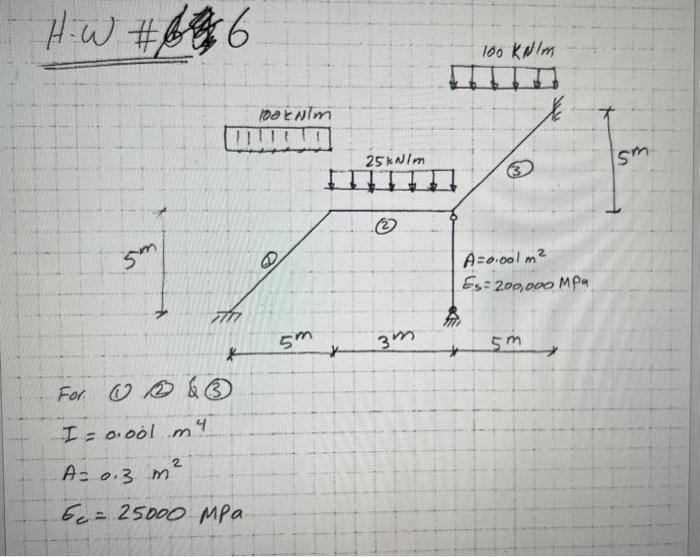 H.W # 6
100 KN/m
100 kN/m
25 kN/m
5m
③
②
5m
①
A=0.001 m²
Es=200,000 MPa
5m
3m
5m
For ① ② & ③
I = 0.001 m⁴
A= 0.3 m²
Ec = 25000 MPa